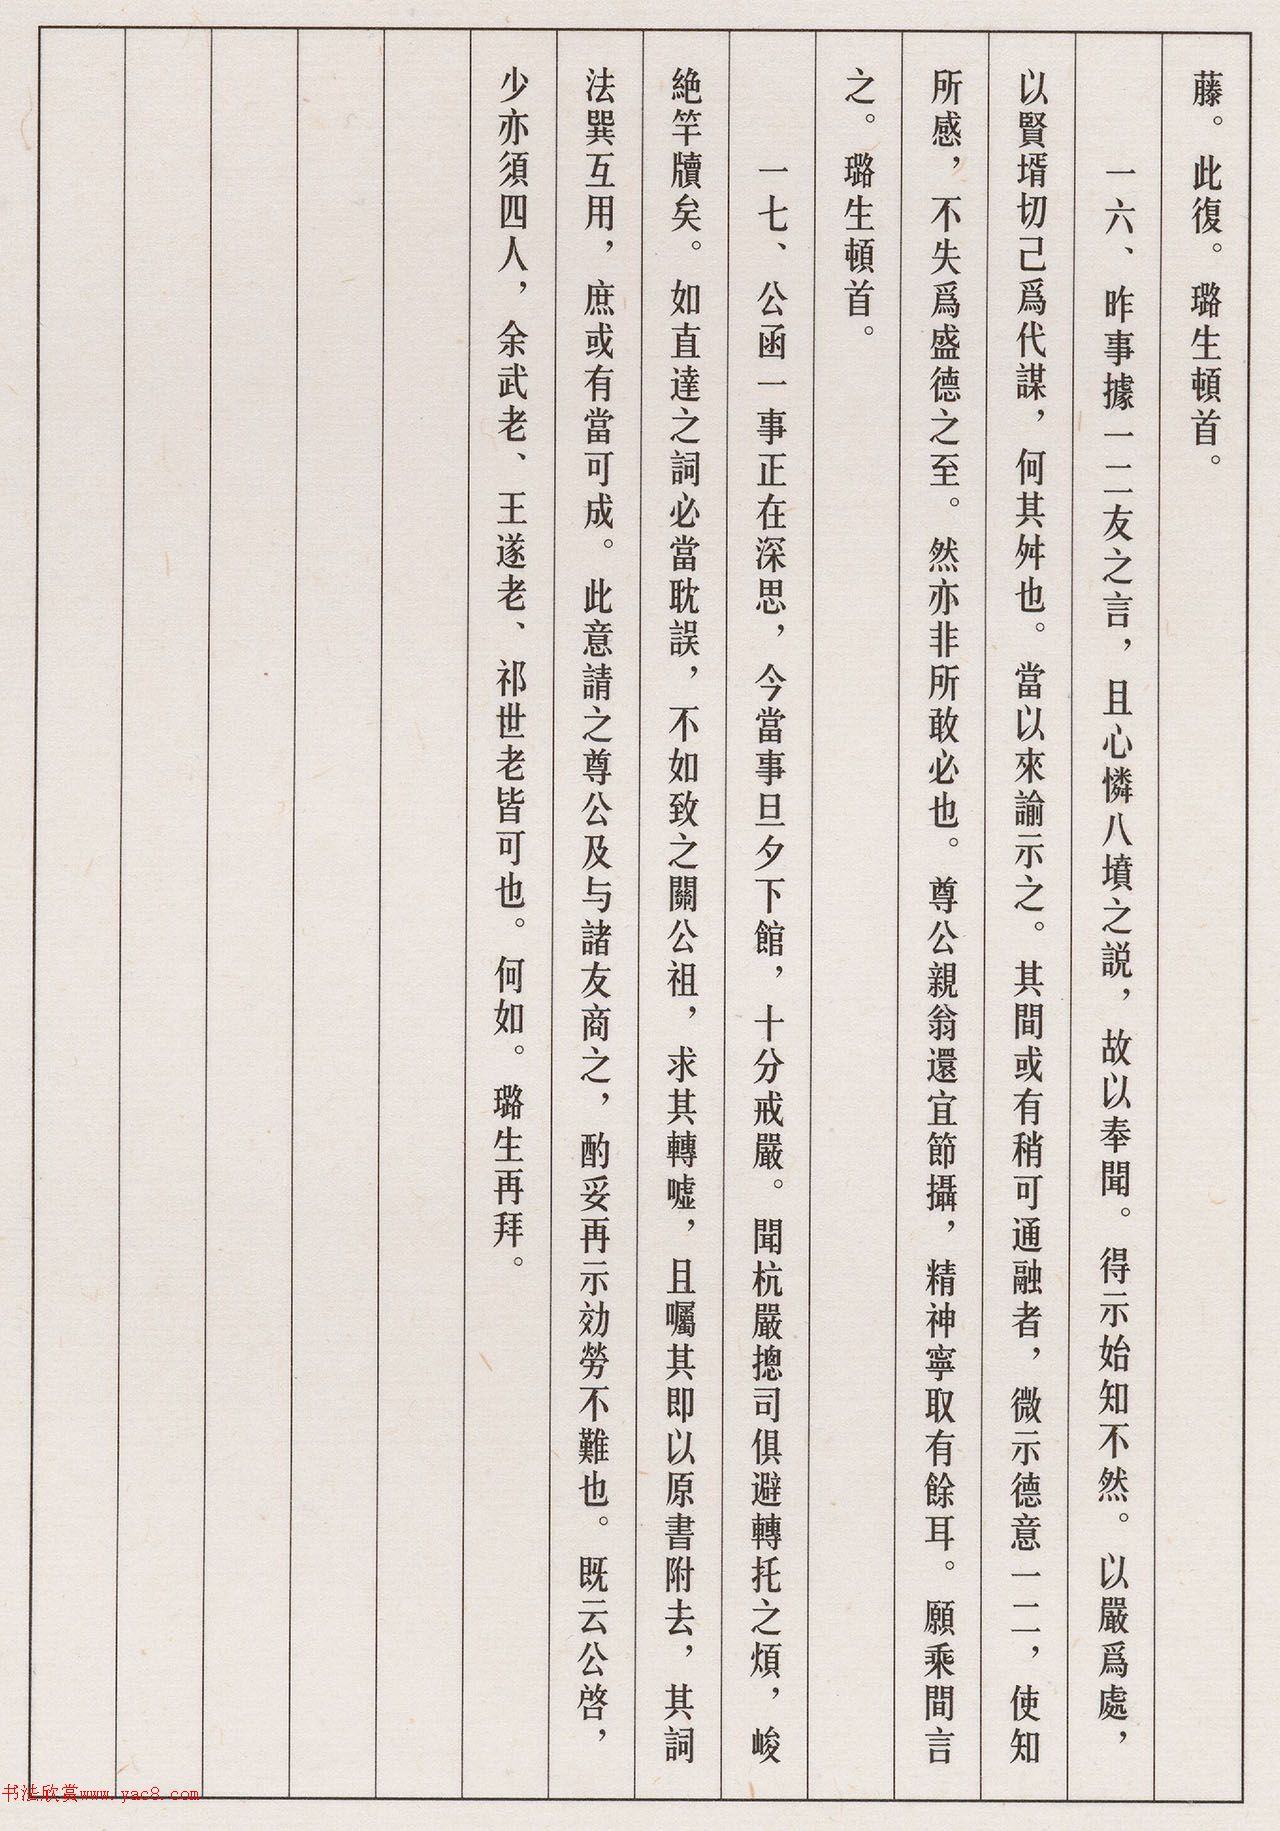 藤。此復。璐生頓首。
一六、昨事據一二友之言，且心憐八墳之説，故以奉聞。得示始知不然。以嚴爲處，
以賢壻切己爲代謀，何其舛也。當以來諭示之。其間或有稍可通融者，微示德意一二，使知
所感，不失爲盛德之至。然亦非所敢必也。尊公親翁還宜節攝，精神寧取有餘耳。願乘間言
之。璐生頓首。
一七、公函一事正在深思，今當事旦夕下館，十分戒嚴。聞杭嚴摠司俱避轉托之煩，峻
絶竿牘矣。如直達之詞必當耽誤，不如致之關公祖，求其轉噓，且囑其即以原書附去，其詞
法巽互用，庶或有當可成。此意請之尊公及与諸友商之，酌妥再示効勞不難也。既云公啓，
少亦須四人，余武老、王遂老、祁世老皆可也。何如。璐生再拜。
书法欣赏www.yac8.com